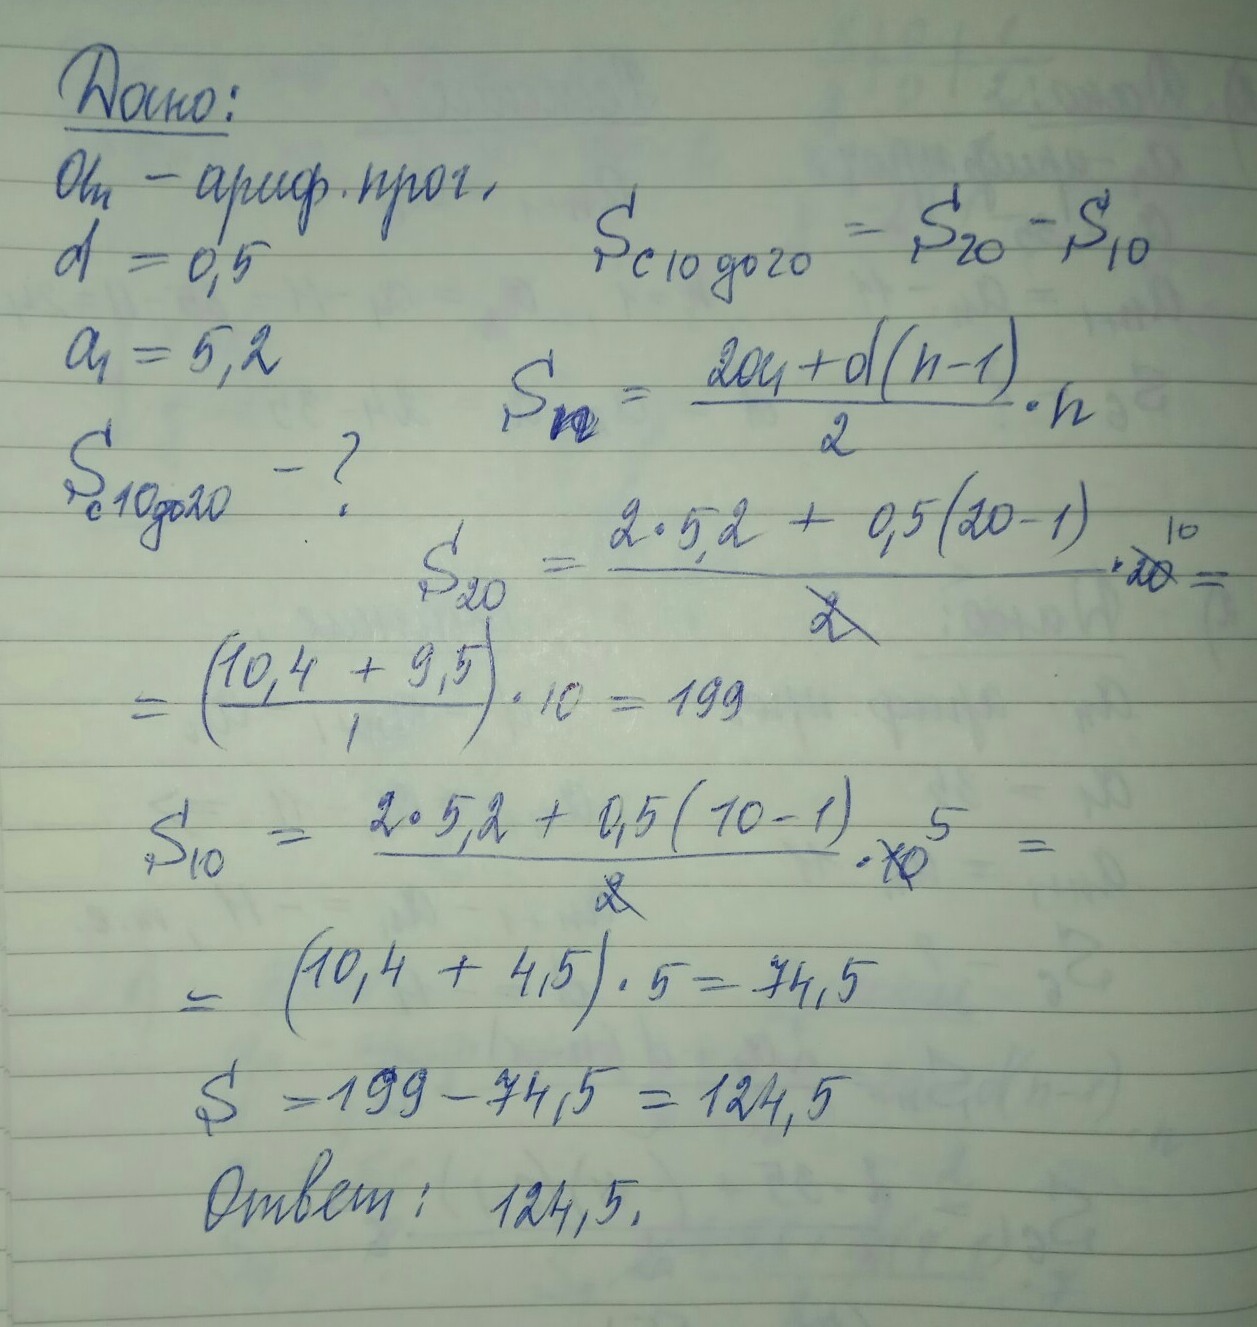 Дано:
an - ариф. прог.
d = 0,5
a1 = 5,2
Sс10до20 - ?
Sс10до20 = S20 - S10
Sn = (2a1 + d(n-1))/2 · n
S20 = (2·5,2 + 0,5(20-1))/2 · 20 10 =
= ((10,4 + 9,5)/1) · 10 = 199
S10 = (2·5,2 + 0,5(10-1))/2 · 10 5 =
= (10,4 + 4,5) · 5 = 74,5
S = 199 - 74,5 = 124,5
Ответ: 124,5.